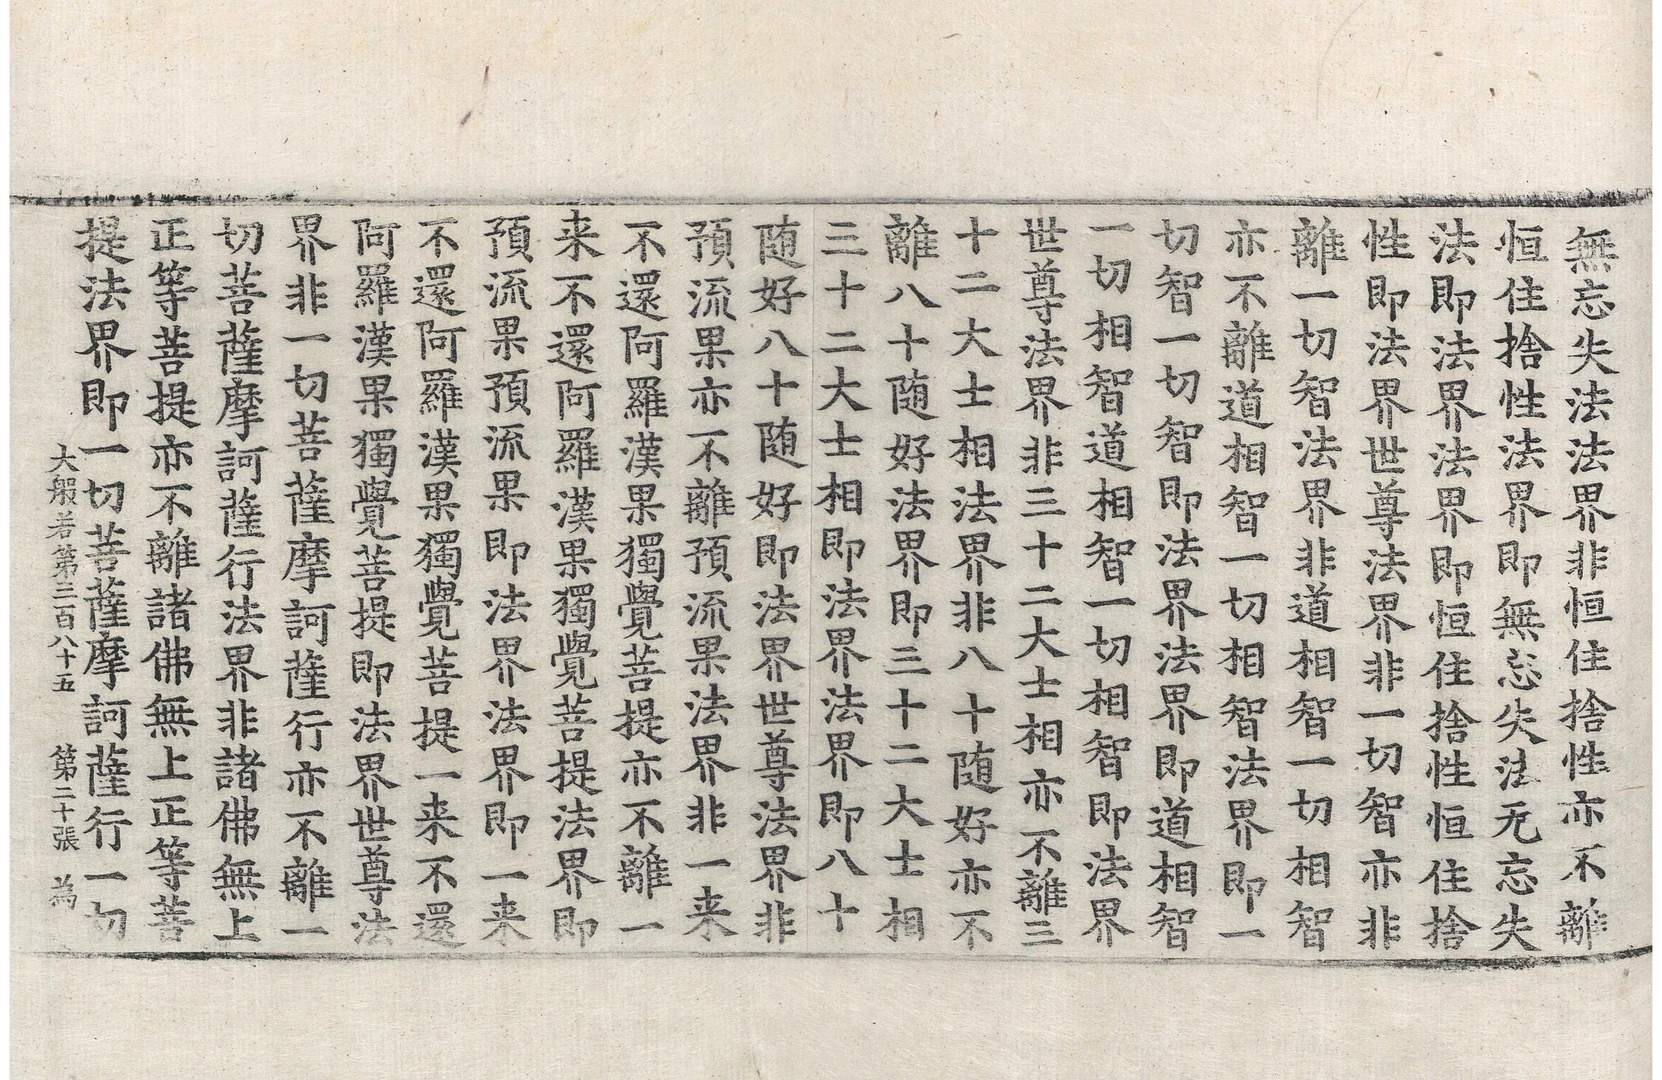 無忘失法法界非恒住捨性亦不離
恒住捨性法界即無忘失法无忘失
法即法界法界即恒住捨性恒住捨
性即法界世尊法界非一切智亦非
離一切智法界非道相智一切相智
亦不離道相智一切相智法界即一
切智一切智即法界法界即道相智
一切相智道相智一切相智即法界
世尊法界非三十二大士相亦不離三
十二大士相法界非八十随好亦不
離八十随好法界即三十二大士相
三十二大士相即法界法界即八十
随好八十随好即法界世尊法界非
預流果亦不離預流果法界非一来
不還阿羅漢果獨覺菩提亦不離一
来不還阿羅漢果獨覺菩提法界即
預流果預流果即法界法界即一来
不還阿羅漢果獨覺菩提一来不還
阿羅漢果獨覺菩提即法界世尊法
界非一切菩薩摩訶薩行亦不離一
切菩薩摩訶薩行法界非諸佛無上
正等菩提亦不離諸佛無上正等菩
提法界即一切菩薩摩訶薩行一切
大般若第三百八十五 第二十張 為